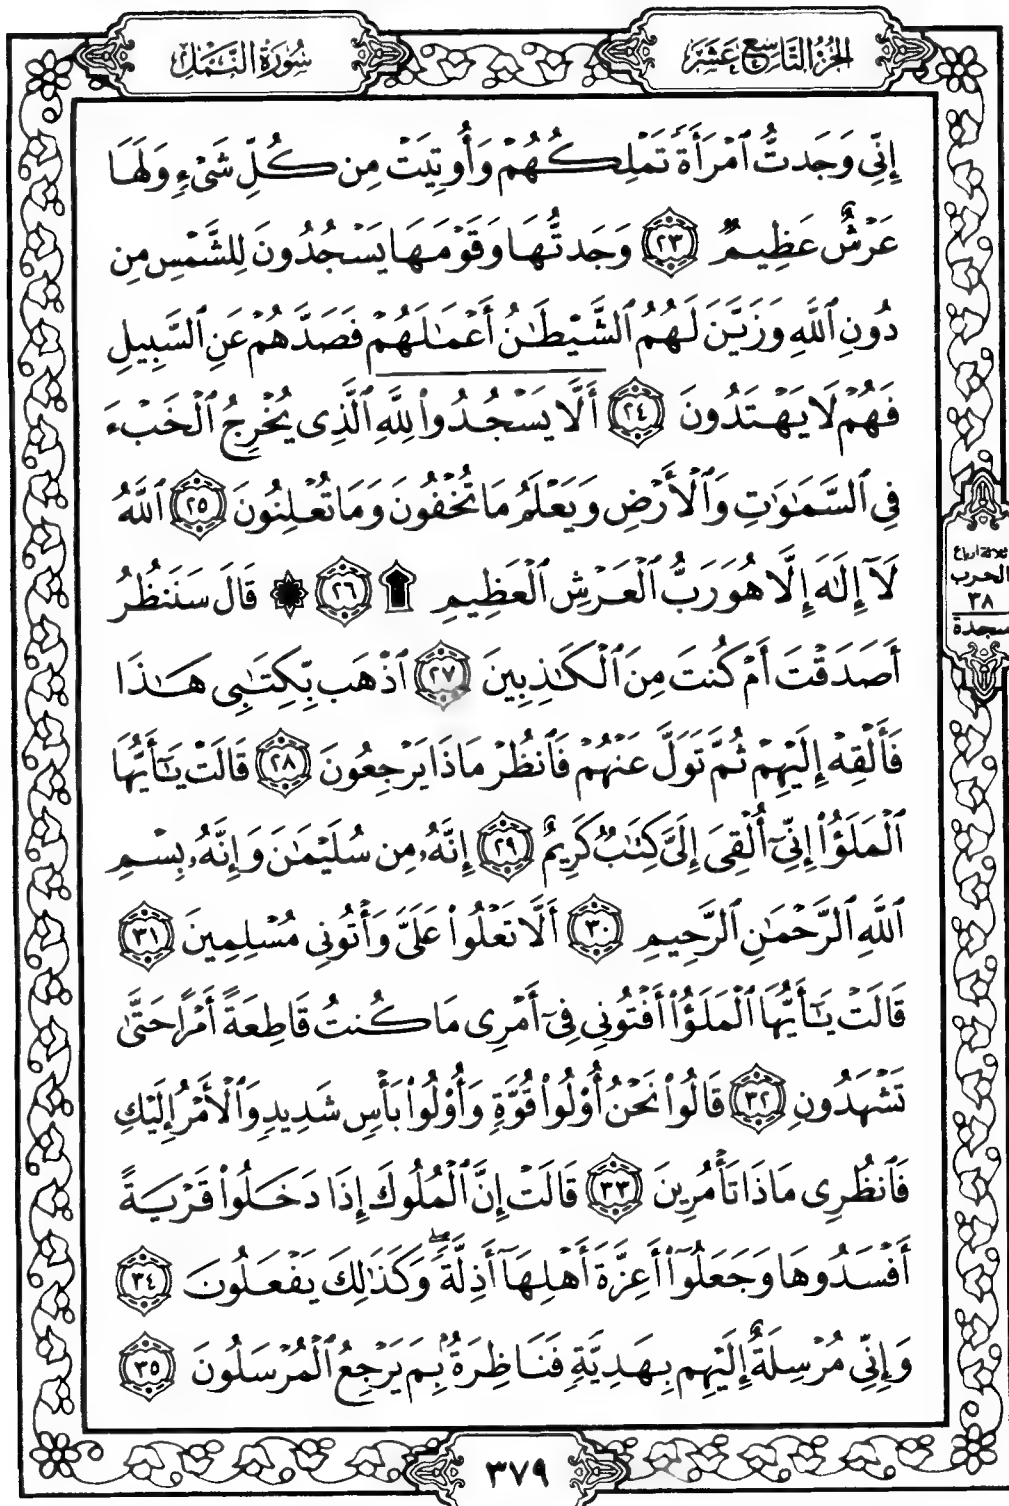 الجزء التاسع عشر
سورة النمل
إِنِّي وَجَدتُّ ٱمْرَأَةً تَمْلِكُهُمْ وَأُوتِيَتْ مِن كُلِّ شَيْءٍ وَلَهَا
عَرْشٌ عَظِيمٌ ٢٣ وَجَدتُّهَا وَقَوْمَهَا يَسْجُدُونَ لِلشَّمْسِ مِن
دُونِ ٱللَّهِ وَزَيَّنَ لَهُمُ ٱلشَّيْطَٰنُ أَعْمَٰلَهُمْ فَصَدَّهُمْ عَنِ ٱلسَّبِيلِ
فَهُمْ لَا يَهْتَدُونَ ٢٤ أَلَّا يَسْجُدُوا۟ لِلَّهِ ٱلَّذِى يُخْرِجُ ٱلْخَبْءَ
فِى ٱلسَّمَٰوَٰتِ وَٱلْأَرْضِ وَيَعْلَمُ مَا تُخْفُونَ وَمَا تُعْلِنُونَ ٢٥ ٱللَّهُ
لَآ إِلَٰهَ إِلَّا هُوَ رَبُّ ٱلْعَرْشِ ٱلْعَظِيمِ ۩ ٢٦ ۞ قَالَ سَنَنظُرُ
أَصَدَقْتَ أَمْ كُنتَ مِنَ ٱلْكَٰذِبِينَ ٢٧ ٱذْهَب بِّكِتَٰبِى هَٰذَا
فَأَلْقِهْ إِلَيْهِمْ ثُمَّ تَوَلَّ عَنْهُمْ فَٱنظُرْ مَاذَا يَرْجِعُونَ ٢٨ قَالَتْ يَٰٓأَيُّهَا
ٱلْمَلَؤُا۟ إِنِّىٓ أُلْقِىَ إِلَىَّ كِتَٰبٌ كَرِيمٌ ٢٩ إِنَّهُۥ مِن سُلَيْمَٰنَ وَإِنَّهُۥ بِسْمِ
ٱللَّهِ ٱلرَّحْمَٰنِ ٱلرَّحِيمِ ٣٠ أَلَّا تَعْلُوا۟ عَلَىَّ وَأْتُونِى مُسْلِمِينَ ٣١
قَالَتْ يَٰٓأَيُّهَا ٱلْمَلَؤُا۟ أَفْتُونِى فِىٓ أَمْرِى مَا كُنتُ قَاطِعَةً أَمْرًا حَتَّىٰ
تَشْهَدُونِ ٣٢ قَالُوا۟ نَحْنُ أُو۟لُوا۟ قُوَّةٍ وَأُو۟لُوا۟ بَأْسٍ شَدِيدٍ وَٱلْأَمْرُ إِلَيْكِ
فَٱنظُرِى مَاذَا تَأْمُرِينَ ٣٣ قَالَتْ إِنَّ ٱلْمُلُوكَ إِذَا دَخَلُوا۟ قَرْيَةً
أَفْسَدُوهَا وَجَعَلُوٓا۟ أَعِزَّةَ أَهْلِهَآ أَذِلَّةً ۖ وَكَذَٰلِكَ يَفْعَلُونَ ٣٤
وَإِنِّى مُرْسِلَةٌ إِلَيْهِم بِهَدِيَّةٍ فَنَاظِرَةٌۢ بِمَ يَرْجِعُ ٱلْمُرْسَلُونَ ٣٥
ثلاثة أرباع
الحزب
٣٨
سجدة
٣٧٩